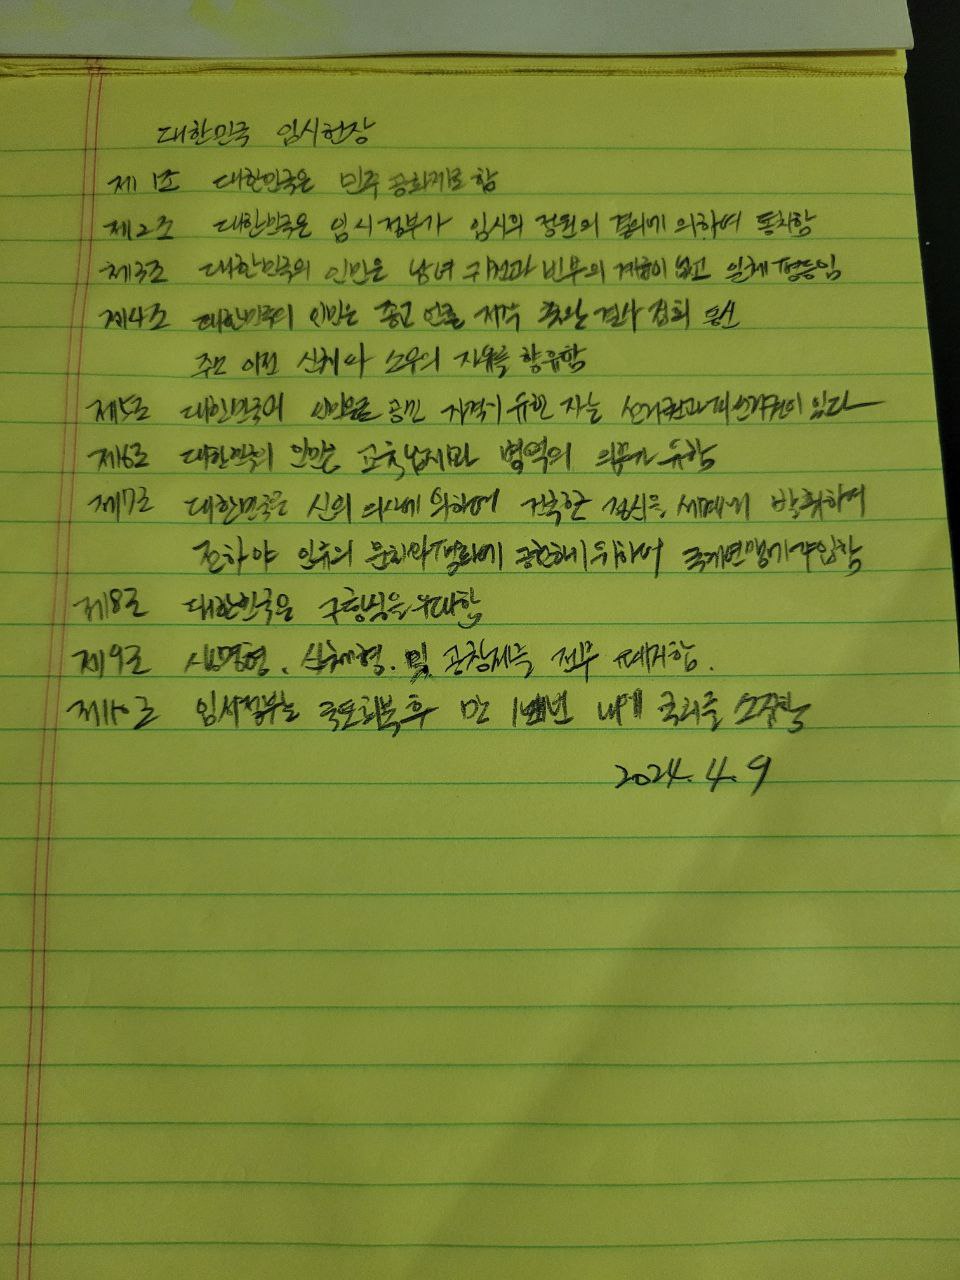 대한민국 임시헌장
제1조 대한민국은 민주 공화제로 함
제2조 대한민국은 임시정부가 임시의 정원의 결의에 의하여 통치함
제3조 대한민국의 인민은 남녀 귀천과 빈부의 계급이 없고 일체 평등임
제4조 대한민국의 인민은 종교 언론 저작 출판 결사 집회 통신
주소 이전 신체와 소유의 자유를 향유함
제5조 대한민국의 인민으로 공민 자격이 유한 자는 선거권과 피선거권이 있다
제6조 대한민국의 인민은 교육 납세와 병역의 의무가 유함
제7조 대한민국은 신의 의사에 의하여 건국한 정신을 세계에 발휘하며
진하야 인류의 문화와 평화에 공헌하기 위하여 국제연맹에 가입함
제8조 대한민국은 구황실을 우대함
제9조 생명형, 신체형. 및 공창제를 전부 폐지함.
제10조 임시정부는 국토회복 후 만 1년 내에 국회를 소집함
2024. 4. 9